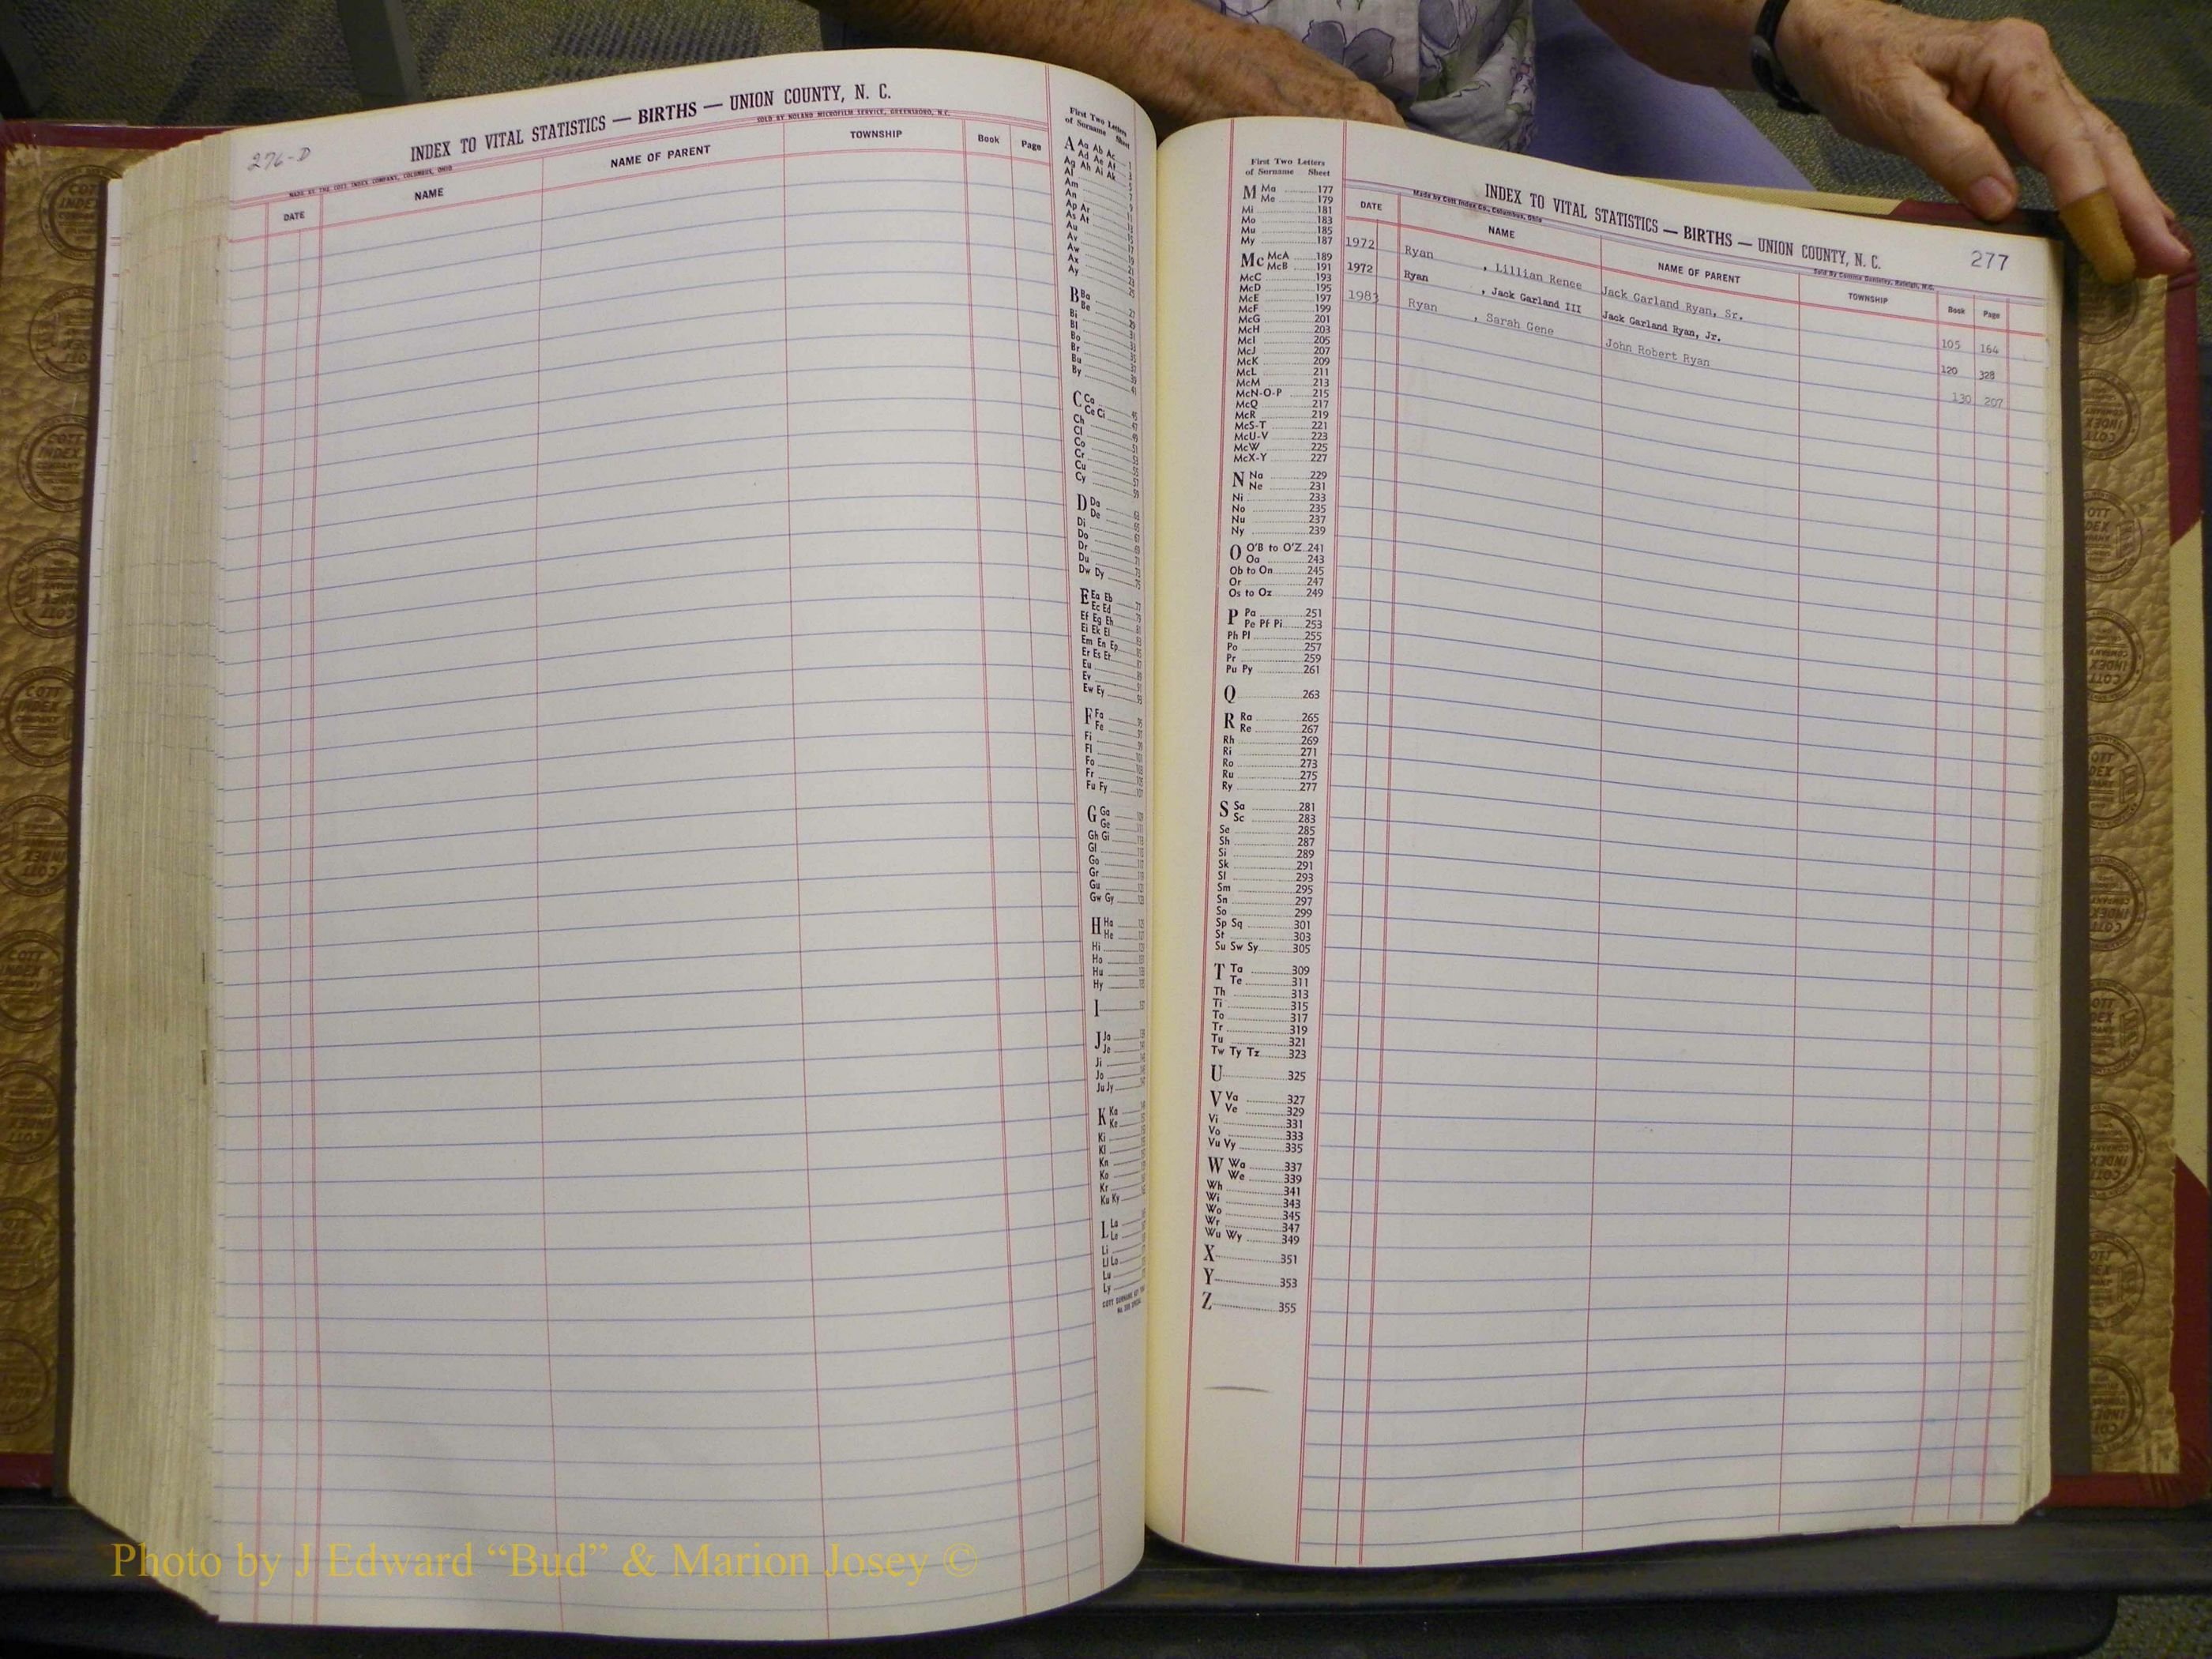 276-D
INDEX TO VITAL STATISTICS — BIRTHS — UNION COUNTY, N. C.
SOLD BY NOLAND MICROFILM SERVICE, GREENSBORO, N.C.
MADE BY THE COTT INDEX COMPANY, COLUMBUS, OHIO
DATE NAME NAME OF PARENT TOWNSHIP Book Page
First Two Letters
of Surname Sheet
A Aa Ab Ac
Ad Ae Af
Ag Ah Ai Ak
Al
Am
An
Ap Ar
As At
Au
Av
Aw
Ax
Ay
B Ba
Be
Bi
Bl
Bo
Br
Bu
By
C Ca
Ce Ci
Ch
Cl
Co
Cr
Cu
Cy
D Da
De
Di
Do
Dr
Du
Dw Dy
E Ea Eb
Ec Ed
Ef Eg Eh
Ei Ek El
Em En Ep
Er Es Et
Eu
Ev
Ew Ey
F Fa
Fe
Fi
Fl
Fo
Fr
Fu Fy
G Ga
Ge
Gh Gi
Gl
Go
Gr
Gu
Gw Gy
H Ha
He
Hi
Ho
Hu
Hy
I
J Ja
Je
Ji
Jo
Ju Jy
K Ka
Ke
Ki
Kl
Kn
Ko
Kr
Ku Ky
L La
Le
Li
Ll Lo
Lu
Ly
First Two Letters
of Surname Sheet
M Ma 177
Me 179
Mi 181
Mo 183
Mu 185
My 187
Mc McA 189
McB 191
McC 193
McD 195
McE 197
McF 199
McG 201
McH 203
McI 205
McJ 207
McK 209
McL 211
McM 213
McN-O-P 215
McQ 217
McR 219
McS-T 221
McU-V 223
McW 225
McX-Y 227
N Na 229
Ne 231
Ni 233
No 235
Nu 237
Ny 239
O O'B to O'Z 241
Oa 243
Ob to On 245
Or 247
Os to Oz 249
P Pa 251
Pe Pf Pi 253
Ph Pl 255
Po 257
Pr 259
Pu Py 261
Q 263
R Ra 265
Re 267
Rh 269
Ri 271
Ro 273
Ru 275
Ry 277
S Sa 281
Sc 283
Se 285
Sh 287
Si 289
Sk 291
Sl 293
Sm 295
Sn 297
So 299
Sp Sq 301
St 303
Su Sw Sy 305
T Ta 309
Te 311
Th 313
Ti 315
To 317
Tr 319
Tu 321
Tw Ty Tz 323
U 325
V Va 327
Ve 329
Vi 331
Vo 333
Vu Vy 335
W Wa 337
We 339
Wh 341
Wi 343
Wo 345
Wr 347
Wu Wy 349
X 351
Y 353
Z 355
INDEX TO VITAL STATISTICS — BIRTHS — UNION COUNTY, N. C.
277
Made by Cott Index Co., Columbus, Ohio
DATE NAME NAME OF PARENT TOWNSHIP Book Page
1972 Ryan , Lillian Renee Jack Garland Ryan, Sr. 105 164
1972 Ryan , Jack Garland III Jack Garland Ryan, Jr. 120 328
1983 Ryan , Sarah Gene John Robert Ryan 130 207
Photo by J Edward “Bud” & Marion Josey ©